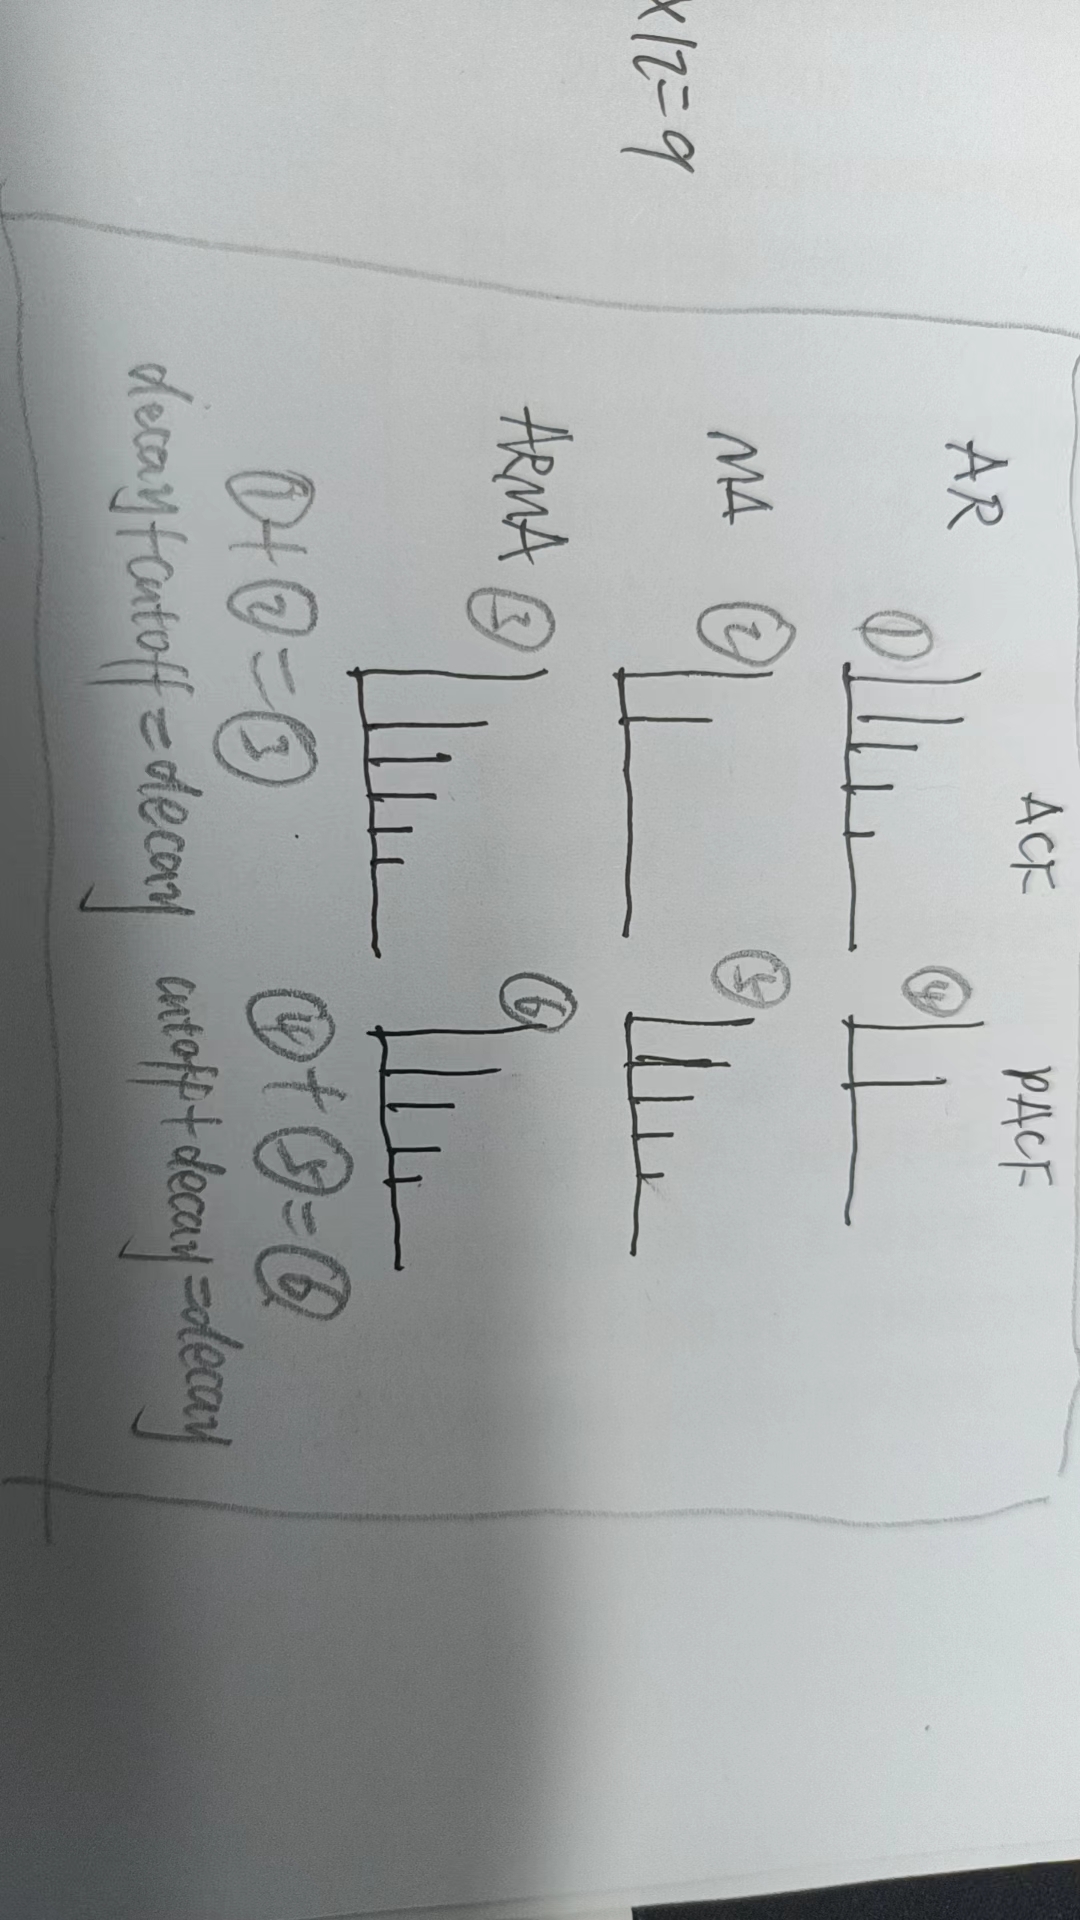 x12=9
ACF PACF
AR ① ④
MA ② ⑤
ARMA ③ ⑥
①+②=③ ④+⑤=⑥
decay+cutoff=decay cutoff+decay=decay